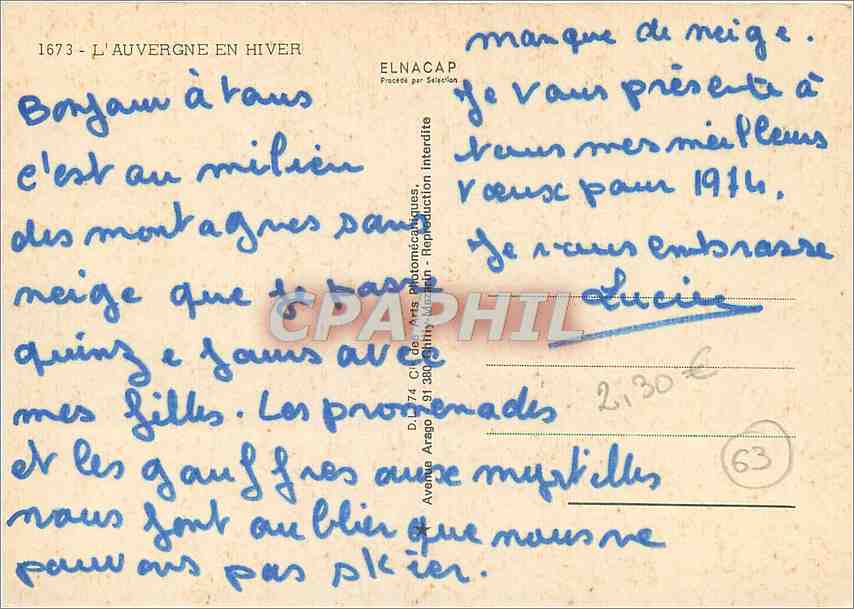 1673 - L'AUVERGNE EN HIVER
ELNACAP
Procédé par Sélection
Bonjour à tous
c'est au milieu
des montagnes sans
neige que je passe
quinze jours avec
mes filles. Les promenades
et les gauffres aux myrtilles
nous font oublier que nous ne
pouvons pas skier.
manque de neige.
Je vous présente à
tous mes meilleurs
vœux pour 1974.
Je vous embrasse
Lucie
D.L. 74 Cie des Arts Photomécaniques,
Avenue Arago - 91380 Chilly-Mazarin - Reproduction Interdite
CPAPHIL
2,30 €
63